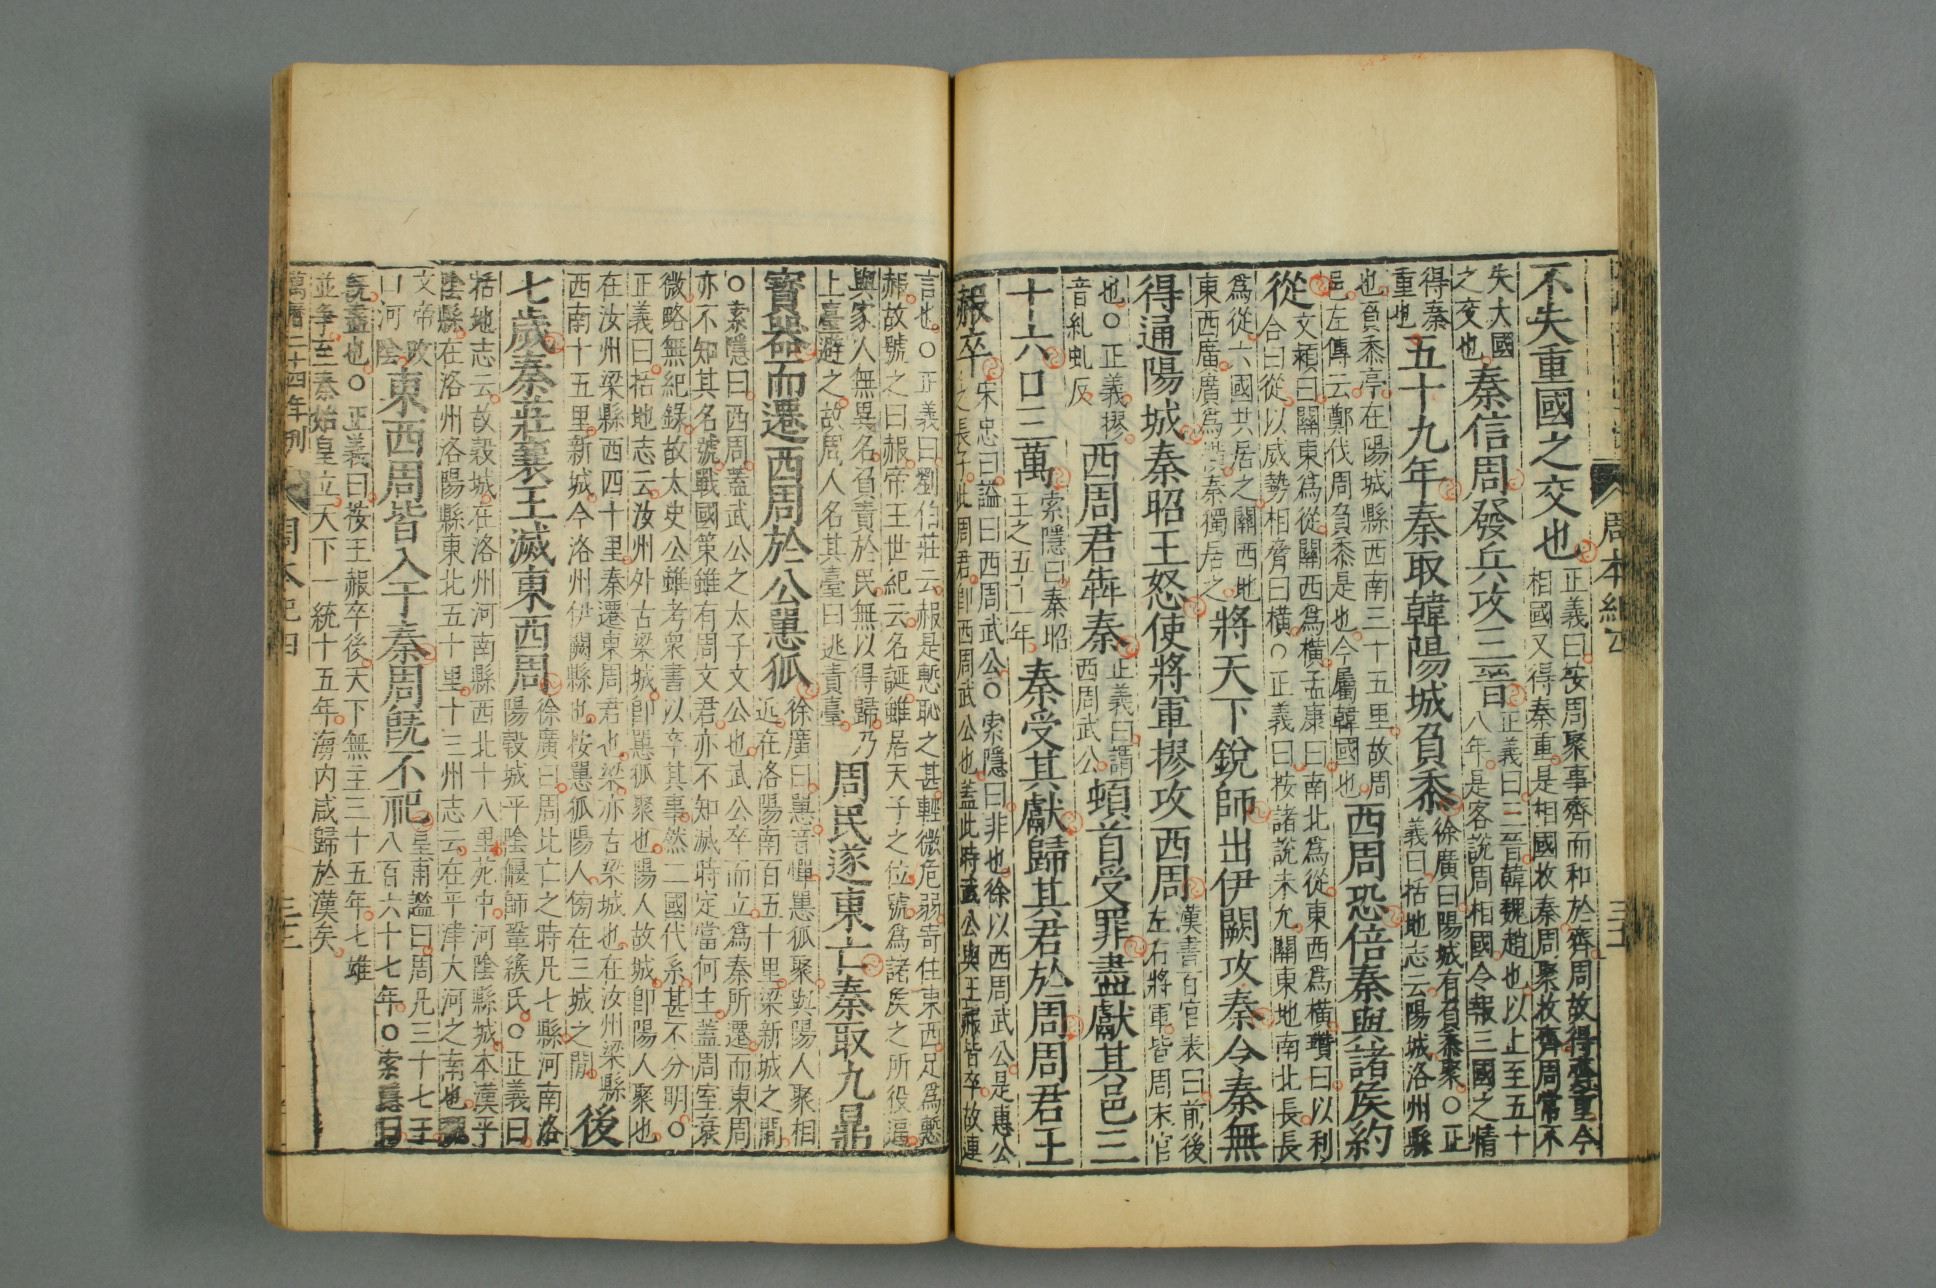 周本紀四
不失重國之交也
正義曰按周聚事齊而和於齊周故得齊重今
相國又得秦重是相國收秦周聚收齊周常不
失大國
之交也
秦信周發兵攻三晉
正義曰三晉韓魏趙也以上至五十
八年是客說周相國令報三國之情
得秦
重也
五十九年秦取韓陽城負黍
徐廣曰陽城有負黍聚○正
義曰括地志云陽城洛州縣
也負黍亭在陽城縣西南三十五里故周
邑左傳云鄭伐周負黍是也今屬韓國也
西周恐倍秦與諸侯約
從
文穎曰關東爲從關西爲橫孟康曰南北爲從東西爲橫瓚曰以利
合曰從以威勢相脅曰橫○正義曰按諸說未允關東地南北長長
爲從六國共居之關西地
東西廣廣爲橫秦獨居之
將天下銳師出伊闕攻秦令秦無
得通陽城秦昭王怒使將軍摎攻西周
漢書百官表曰前後
左右將軍皆周末官
也○正義摎
音紀虬反
西周君犇秦
正義曰謂
西周武公
頓首受罪盡獻其邑三
十六口三萬
索隱曰秦昭
王之五十二年
秦受其獻歸其君於周周君王
赧卒
宋忠曰謚曰西周武公○索隱曰非也徐以西周武公是惠公
之長子此周君即西周武公也蓋此時武公與王赧皆卒故連
言也○正義曰劉伯莊云赧是慙恥之甚輕微危弱寄住東西足爲慙
赧故號之曰赧帝王世紀云名誕雖居天子之位號爲諸侯之所役逼
與家人無異名負責於民無以得歸乃
上臺避之故周人名其臺曰逃責臺
周民遂東亡秦取九鼎
寶器而遷西周於公𢠸狐
徐廣曰𢠸音憚𢠸狐聚與陽人聚相
近在洛陽南百五十里梁新城之閒
○索隱曰西周蓋武公之太子文公也武公卒而立爲秦所遷而東周
亦不知其名號戰國策雖有周文君亦不知滅時定當何主蓋周室衰
微略無紀錄故太史公雖考衆書以卒其事然二國代系甚不分明○
正義曰括地志云汝州外古梁城即𢠸狐聚也陽人故城即陽人聚也
在汝州梁縣西四十里秦遷東周君也梁亦古梁城也在汝州梁縣
西南十五里新城今洛州伊闕縣也按𢠸狐陽人傍在三城之閒
後
七歲秦莊襄王滅東西周
徐廣曰周比亡之時凡七縣河南洛
陽穀城平陰偃師鞏緱氏○正義曰
括地志云故穀城在洛州河南縣西北十八里苑中河陰縣城本漢平
陰縣在洛州洛陽縣東北五十里十三州志云在平津大河之南也魏
文帝改
曰河陰
東西周皆入于秦周既不祀
皇甫謐曰周凡三十七王
八百六十七年○索隱曰
既盡也○正義曰按王赧卒後天下無主三十五年七雄
並爭至秦始皇立天下一統十五年海內咸歸於漢矣
萬曆二十四年刊
周本紀四